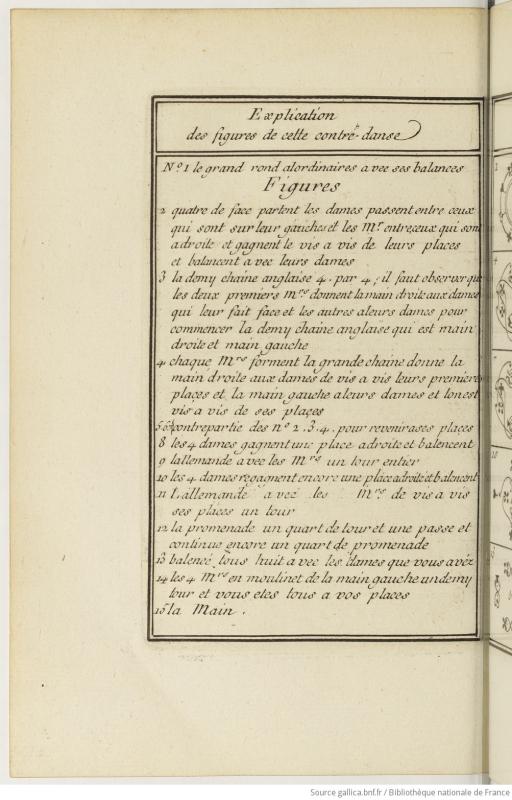 Explication
des figures de cette contre-danse
N.º 1 le grand rond alordinaires avec ses balances
Figures
2 quatre de face partent les dames passent entre ceux
qui sont sur leur gauches et les M.rs entre ceux qui sont
adroite et gagnent le vis a vis de leurs places
et balancent avec leurs dames
3 la demy chaine anglaise 4. par 4, il faut observer que
les deux premiers M.rs donnent la main droite aux dames
qui leur fait face et les autres aleurs dames pour
commencer la demy chaine anglaise qui est main
droite et main gauche
4 chaque M.rs forment la grande chaine donne la
main droite aux dames de vis a vis leurs premiere
places et la main gauche aleurs dames et lonest
vis a vis de ses places
5 6 7 contrepartie des n.º 2. 3. 4. pour revenir ases places
8 les 4 dames gagnent une place adroite et balencent
9 lallemande avec les M.rs un tour entier
10 les 4 dames regagnent encore une place adroite et balencent
11 L'allemande avec les M.rs de vis a vis
ses places un tour
12 la promenade un quart de tour et une passe et
continue encore un quart de promenade
13 balencé tous huit avec les dames que vous avéz
14 les 4 M.rs en moulinet de la main gauche un demy
tour et vous etes tous a vos places
15 la Main.
Source gallica.bnf.fr / Bibliothèque nationale de France